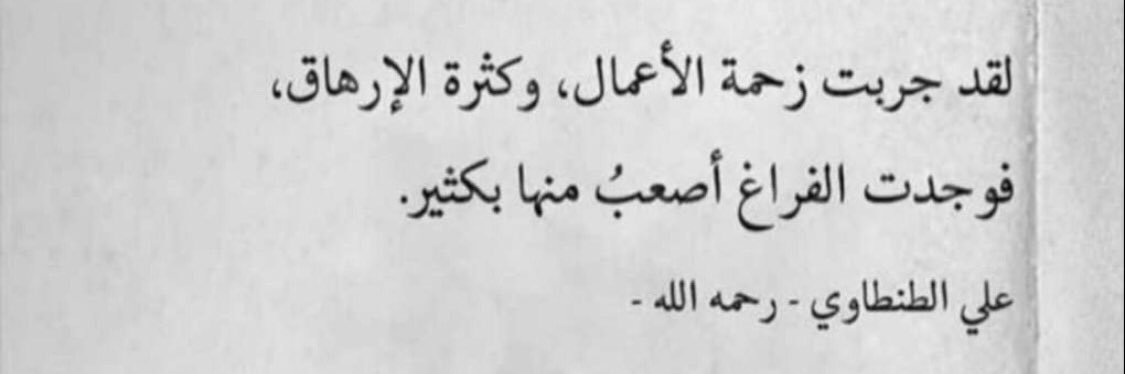 لقد جربت زحمة الأعمال، وكثرة الإرهاق،
فوجدت الفراغ أصعبُ منها بكثير.
علي الطنطاوي - رحمه الله -